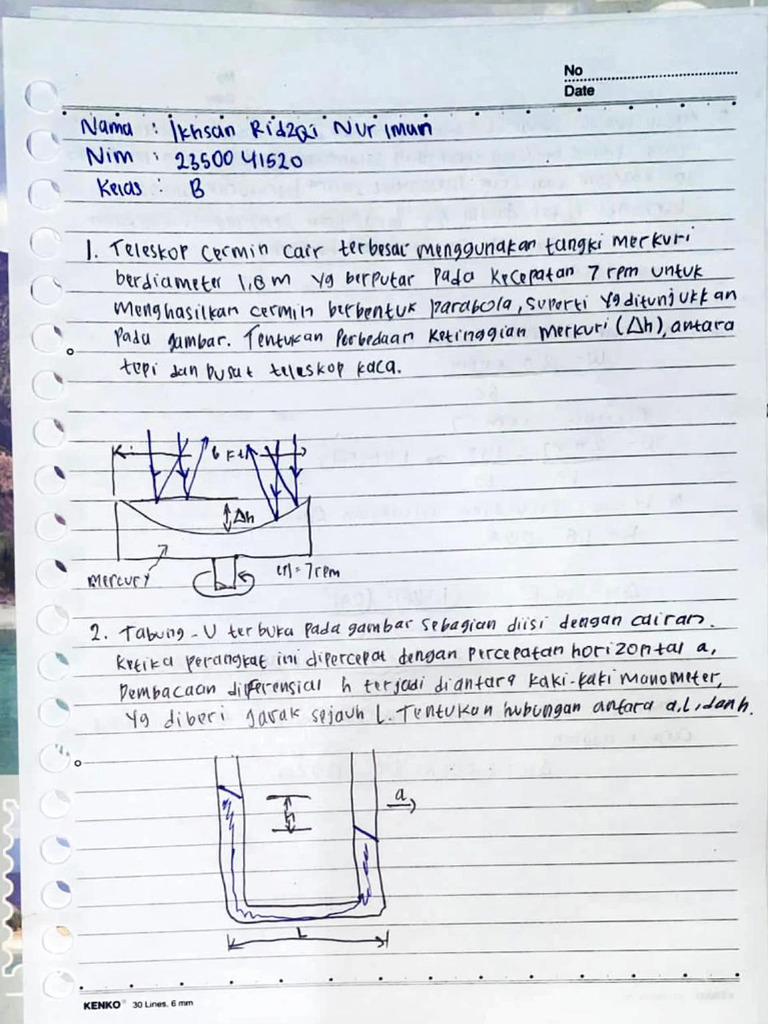 No
Date
Nama : Ikhsan Ridzqi Nur Iman
Nim : 23500 41520
Kelas : B
1. Teleskop cermin cair terbesar menggunakan tangki merkuri
berdiameter 1,8 m yg berputar pada kecepatan 7 rpm untuk
menghasilkan cermin berbentuk parabola, suporti yg ditunjukkan
pada gambar. Tentukan perbedaan ketinggian merkuri (Δh), antara
tepi dan pusat teleskop kaca.
6 ft
Δh
mercury
= 7 rpm
2. Tabung-U terbuka pada gambar sebagian diisi dengan cairan.
Ketika perangkat ini dipercepat dengan percepatan horizontal a,
pembacaan differensial h terjadi diantara kaki-kaki manometer,
yg diberi jarak sejauh L. Tentukan hubungan antara a, L, dan h.
a
h
L
KENKO® 30 Lines, 6 mm